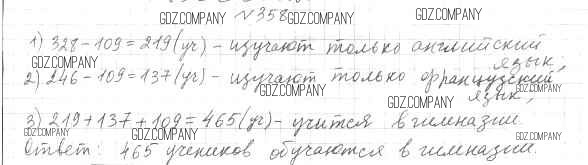 GDZ.COMPANY
№358 GDZ.COMPANY
1) 328-109=219(уч) - изучают только английский
язык;
GDZ.COMPANY GDZ.COMPANY
2) 246-109=137(уч) - изучают только французский
GDZ.COMPANY GDZ.COMPANY
язык;
GDZ.COMPANY
3) 219+137+109=465(уч) - учится в гимназии.
GDZ.COMPANY GDZ.COMPANY
Ответ: 465 учеников обучаются в гимназии.
GDZ.COMPANY